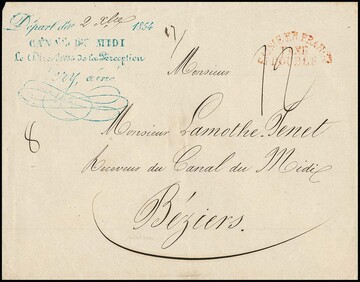 Départ du 2 Xbre 1854
CANAL DU MIDI
Le Directeur de la Perception
17/
Monsieur
8
Monsieur Lamothe Tenet
Receveur du Canal du Midi
Béziers.